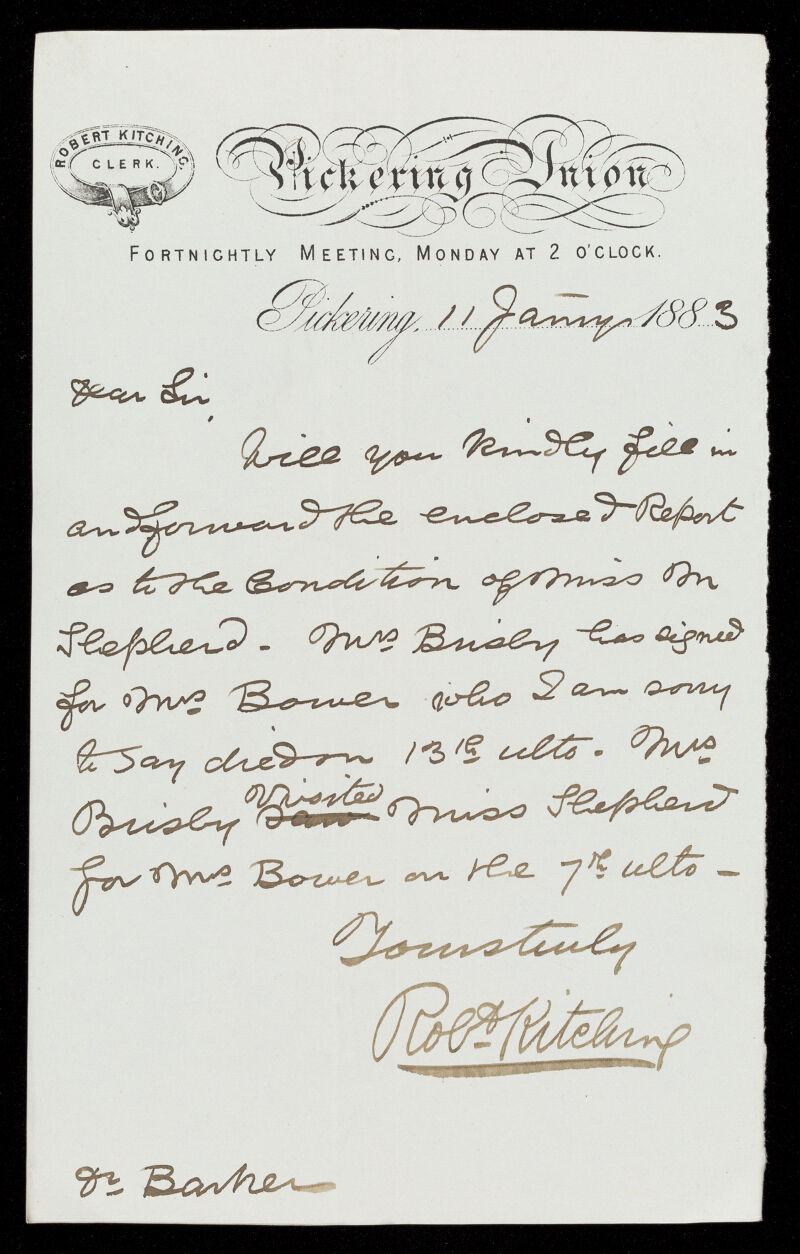 ROBERT KITCHING.
CLERK.
Pickering Union
FORTNIGHTLY MEETING, MONDAY AT 2 O'CLOCK.
Pickering, 11 Janny 1883
Dear Sir,
Will you kindly fill in
and forward the enclosed Report
as to the Condition of Miss M
Shepherd - Mrs Brisby has signed
for Mrs Bower who I am sorry
to say died on 13th ulto. Mrs
Visited
Brisby saw Miss Shepherd
for Mrs Bower on the 7th ulto -
Yours truly
Robt Kitching
Dr Barker